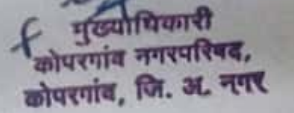 मुख्याधिकारी
कोपरगांव नगरपरिषद,
कोपरगांव, जि. अ. नगर